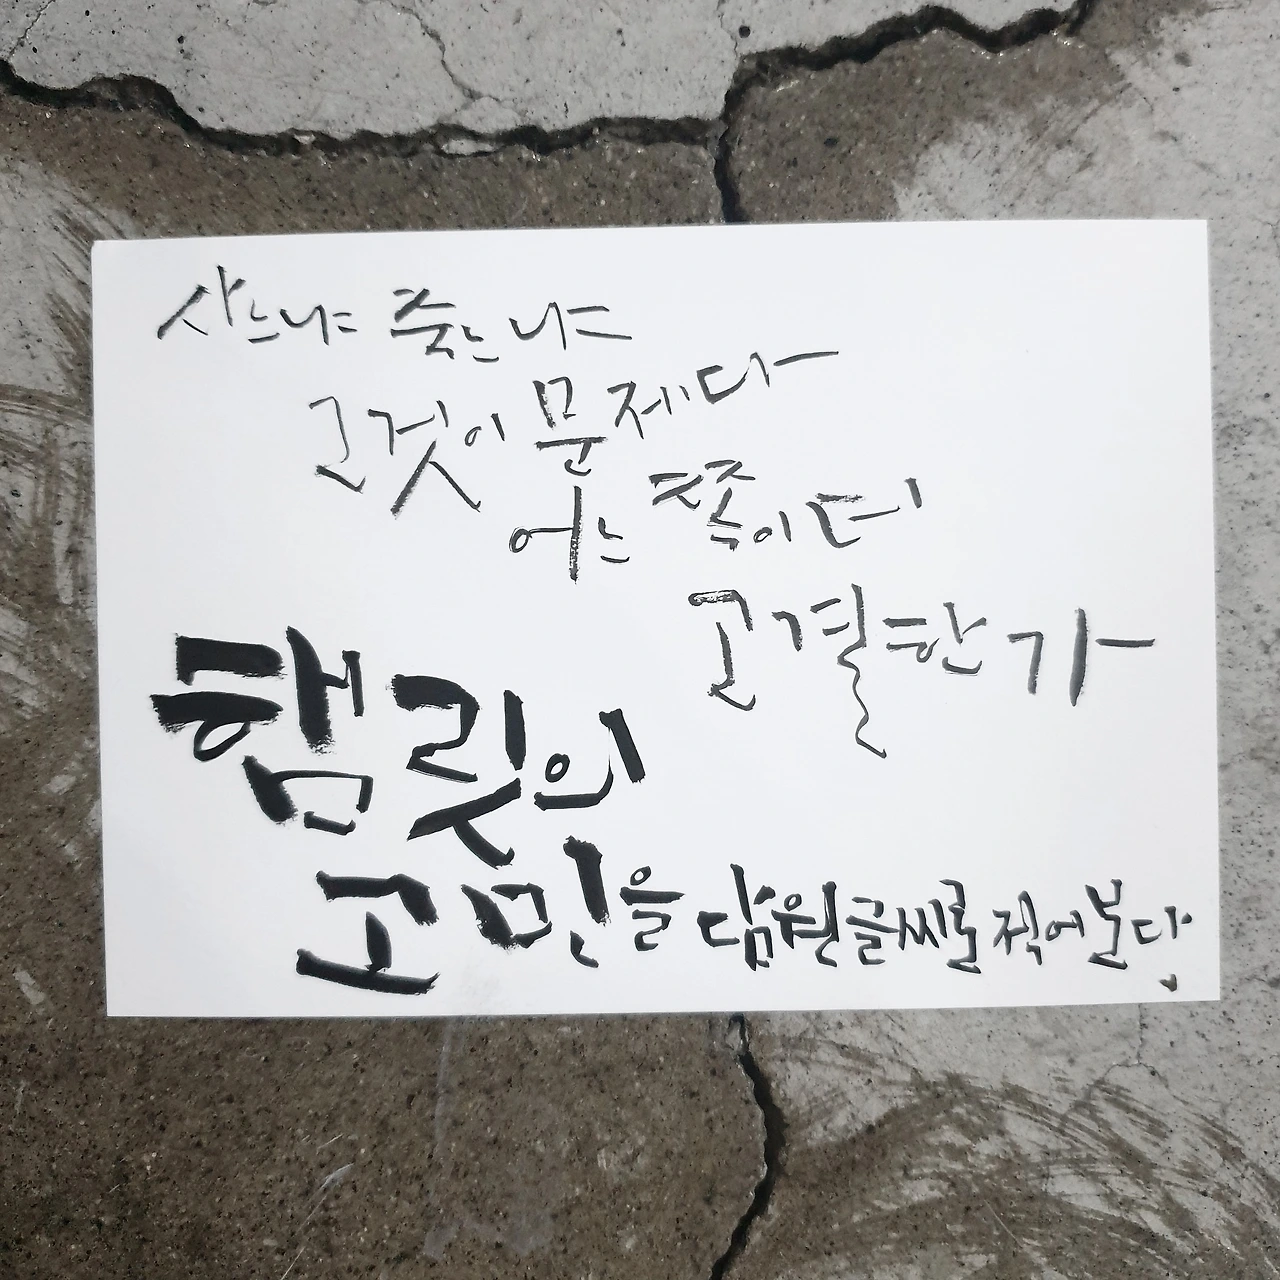 사느냐 죽느냐
그것이 문제다
어느 쪽이 더
고결한가
햄릿의
고민을 담원글씨로 적어본다